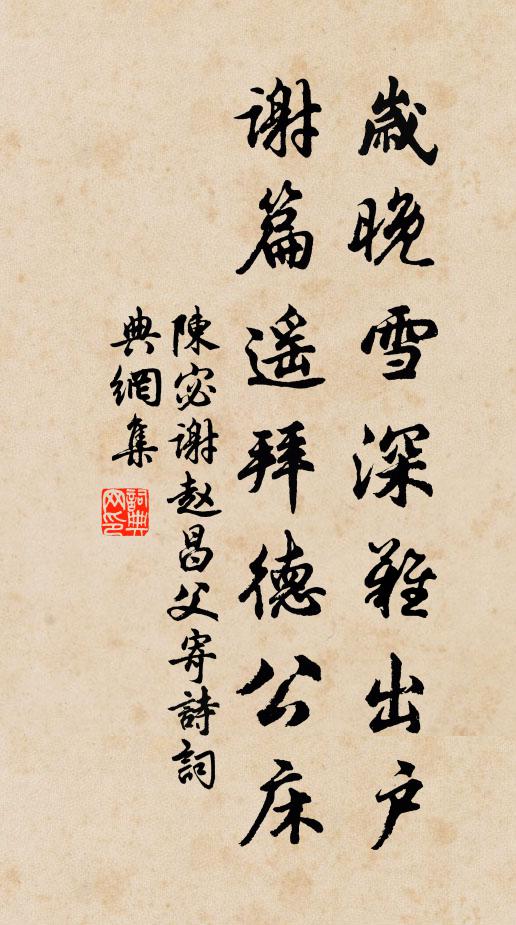 歲晚雪深難出戶
謝篇遥拜德公床
陳宓謝赵昌父寄詩詞
典網集
詞典
网印